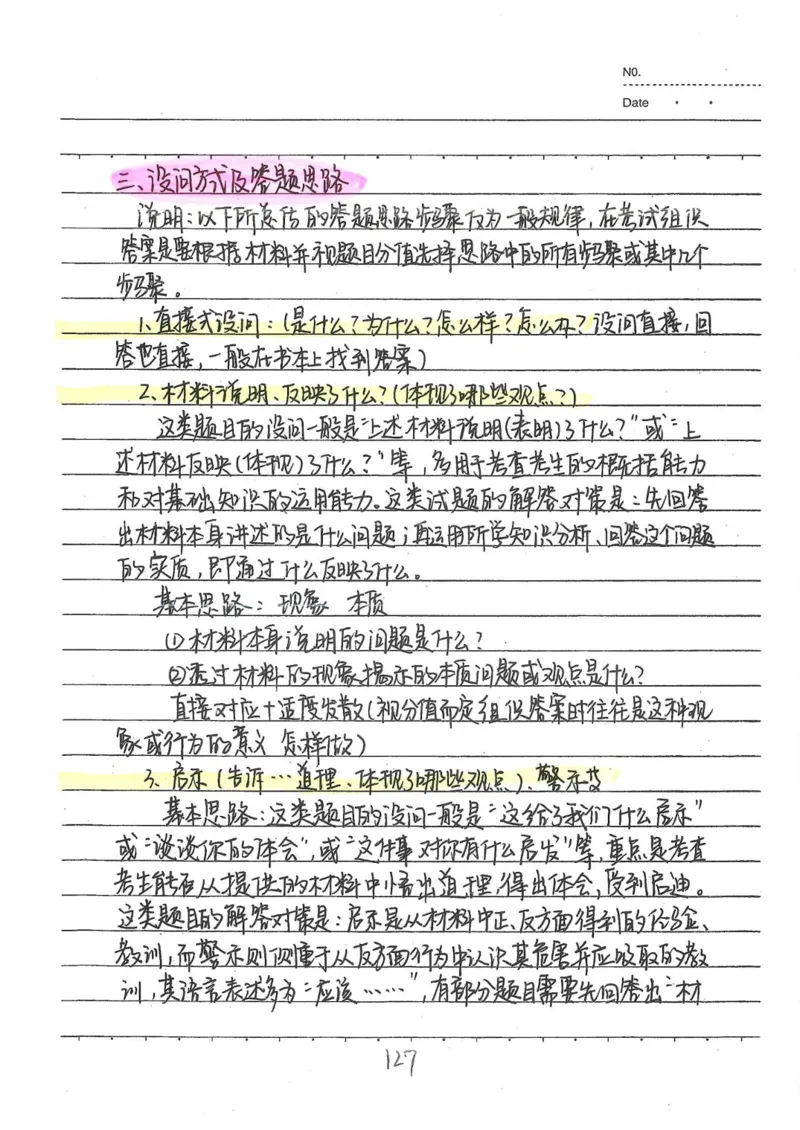 NO.
Date
三、设问方式及答题思路
说明:以下所总结的答题思路步骤仅为一般规律,在考试组织
答案是要根据材料并视题目分值选择思路中的所有步骤或其中几个
步骤。
1、直接式设问:(是什么?为什么?怎么样?怎么办?设问直接,回
答也直接,一般在书本上找到答案)
2、材料说明、反映了什么?(体现了哪些观点?)
这类题目的设问一般是“上述材料说明(表明)了什么?”或“上
述材料反映(体现)了什么?”等,多用于考查考生的概括能力
和对基础知识的运用能力。这类试题的解答对策是:先回答
出材料本身讲述的是什么问题;再运用所学知识分析、回答这个问题
的实质,即通过什么反映了什么。
基本思路:现象 本质
①材料本身说明的问题是什么?
②透过材料的现象揭示的本质问题或观点是什么?
直接对应+适度发散(视分值而定组织答案时往往是这种现
象或行为的意义 怎样做)
3、启示(告诉…道理、体现了哪些观点)、警示
基本思路:这类题目的设问一般是“这给了我们什么启示”
或“谈谈你的体会”,或“这件事对你有什么启发”等,重点是考查
考生能否从提供的材料中悟出道理,得出体会,受到启迪。
这类题目的解答对策是:启示是从材料中正、反方面得到的经验、
教训,而警示则侧重于从反方面行为中认识其危害并应吸取的教
训,其语言表述多为“应该……”,有部分题目需要先回答出“材
127